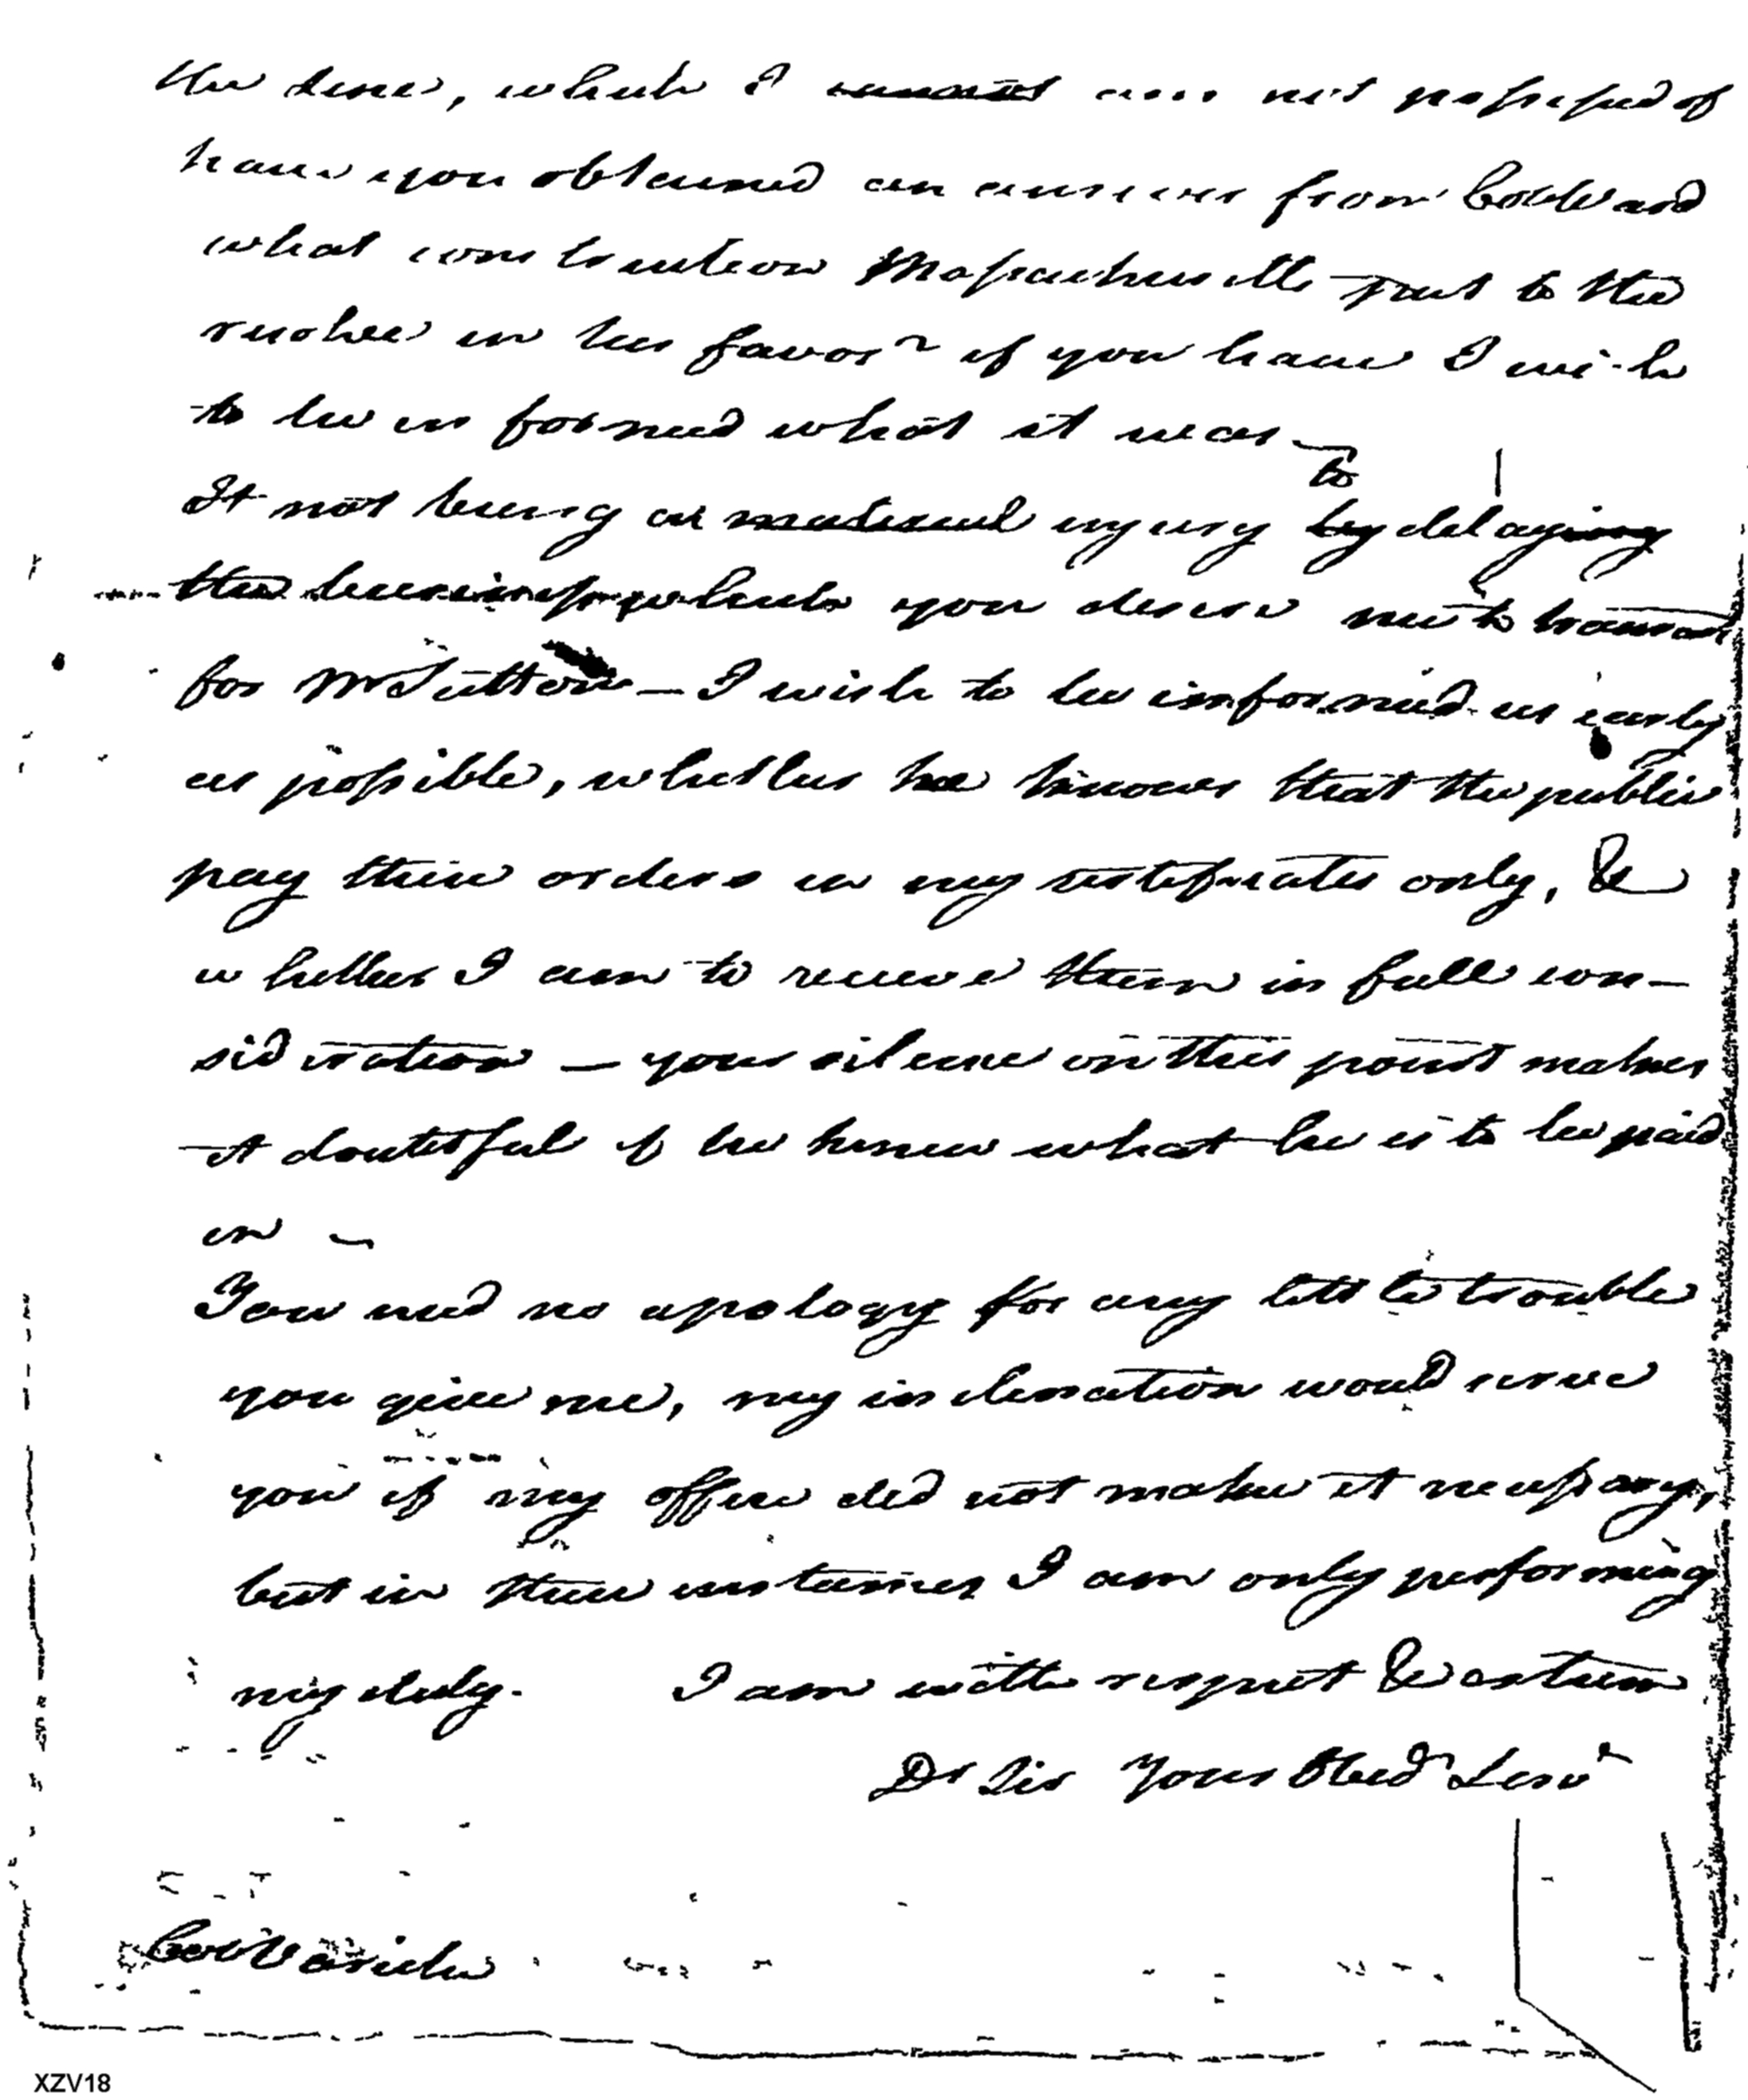 the line, which I cannot am not possessed of
have you obtained an answer from Col Ward
what construction Massachusetts put to the
resolve in his favor? if you have I wish
to be informed what it was
to
It not being a material injury by delaying
the business which you desire me to transact
for Mr Sutton — I wish to be informed as early
as possible, whether he knows that the public
pay their orders in my certificates only, &
whether I am to receive them in full con-
sideration — your silence on this point makes
it doubtful if he knew what he is to be paid
in —
You need no apology for any little trouble
you give me, my inclination would serve
you if my office did not make it necessary,
but in these instances I am only performing
my duty. I am with respect & esteem
Dr Sir Your Obed Serv
Col Varick
XZV18